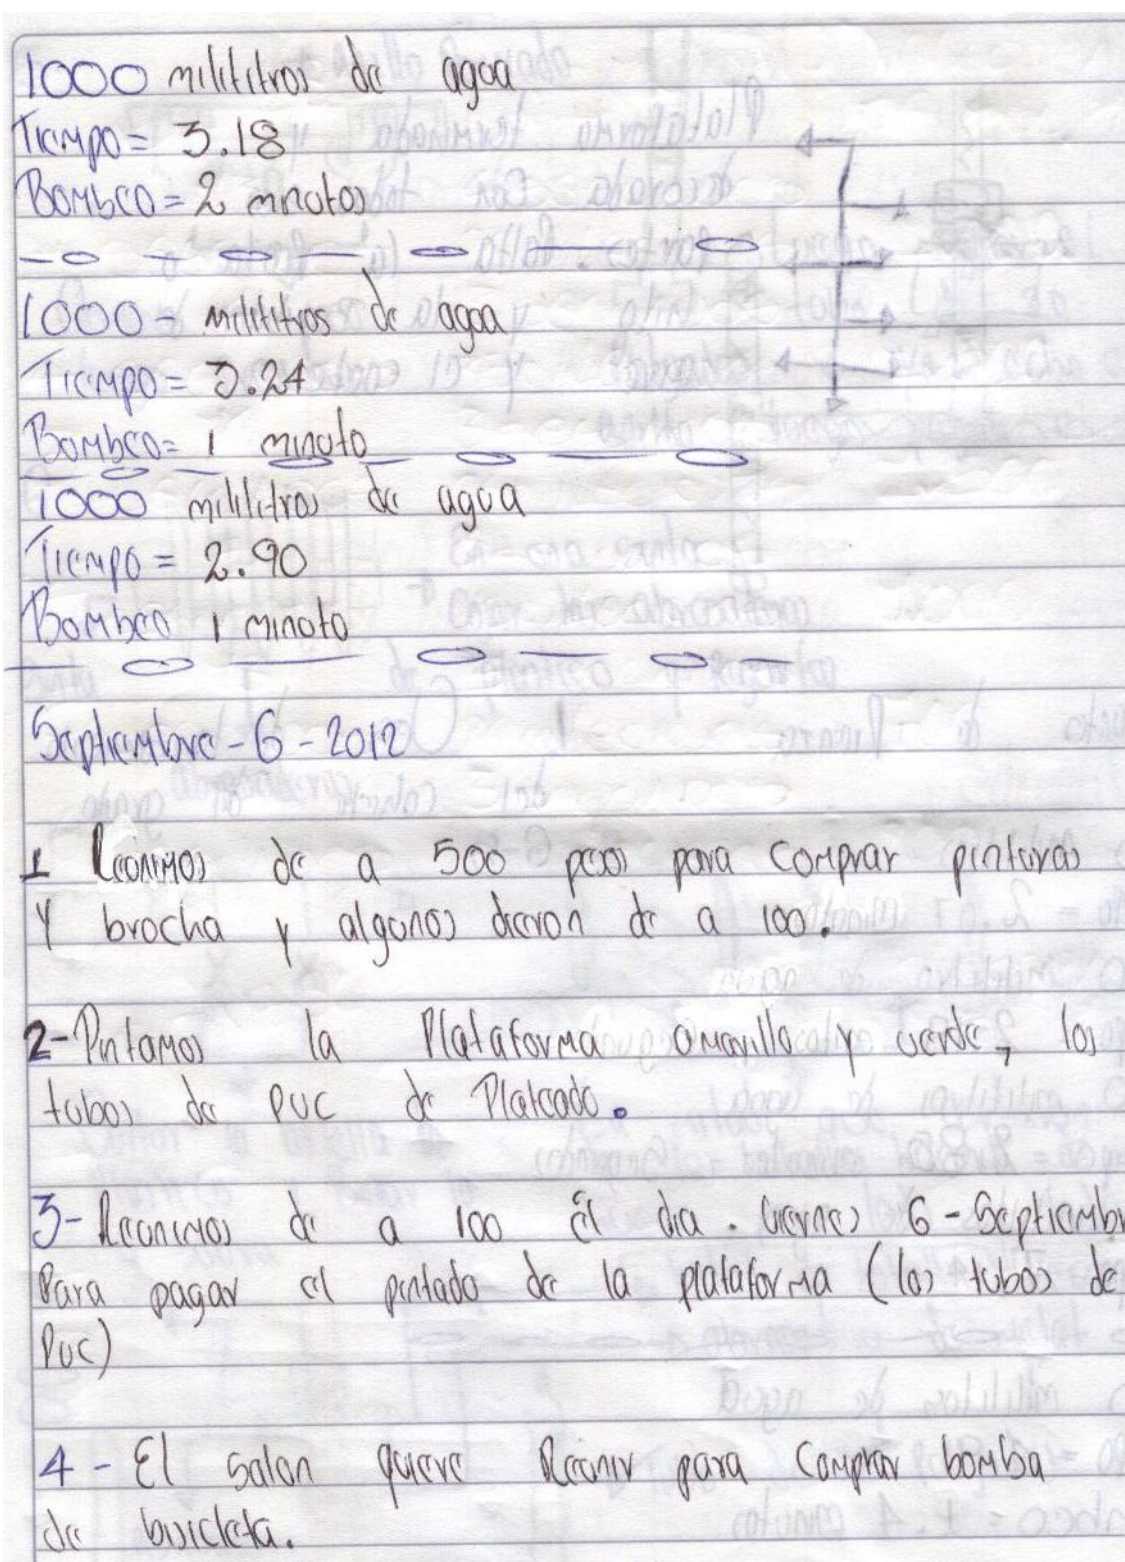 1000 mililitros de agua
Tiempo = 3.18
Bombeo = 2 minutos
1000 - mililitros de agua
Tiempo = 3.24
Bombeo = 1 minuto
1000 mililitros de agua
Tiempo = 2.90
Bombeo 1 minuto
Septiembre - 6 - 2012
1 Reunimos de a 500 pesos para comprar pinturas
y brocha y algunos dieron de a 100.
2- Pintamos la Plataforma amarillo y verde, los
tubos de PVC de Plateado.
3- Reunimos de a 100 el dia. viernes 6 - Septiembr
Para pagar el pintado de la plataforma (los tubos de
PVC)
4 - El salon quiere Reunir para comprar bomba
de bicicleta.